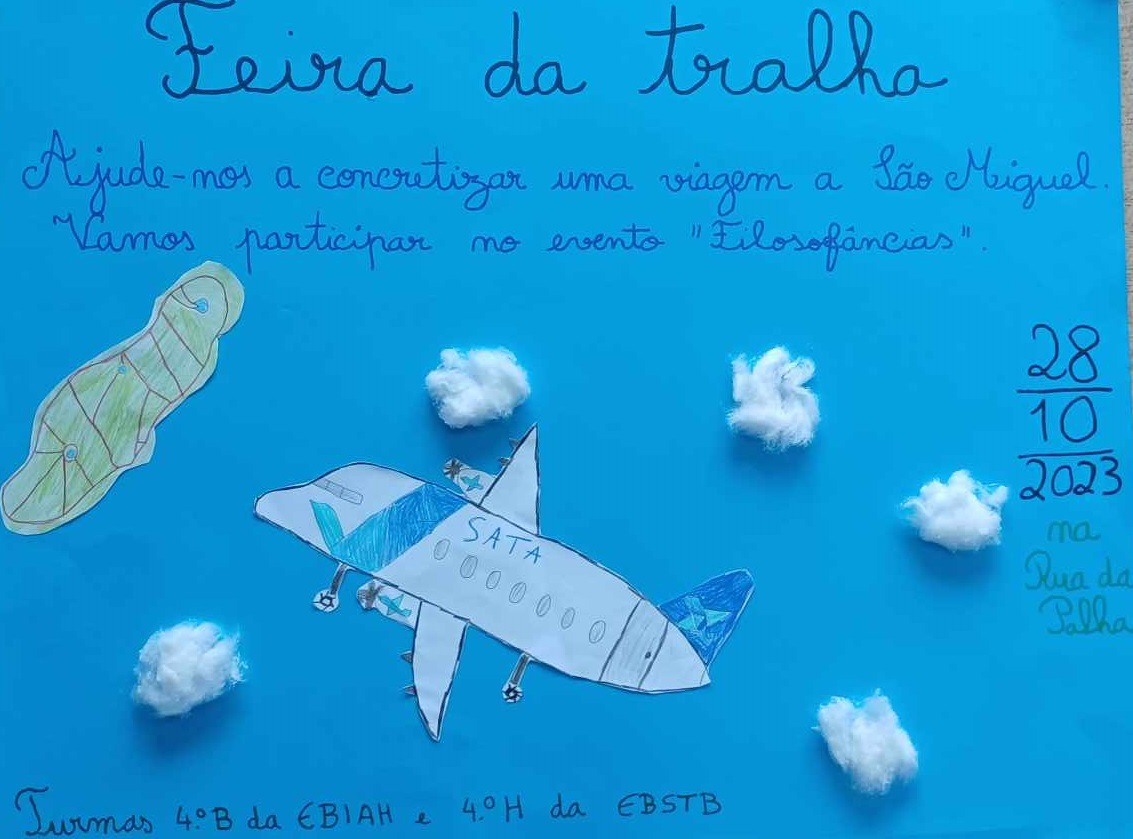 Feira da tralha
Ajude-nos a concretizar uma viagem a São Miguel.
Vamos participar no evento "Filosofâncias".
28
10
2023
na
Rua da
Palha
SATA
Turmas 4.ºB da EBIAH e 4.ºH da EBSTB